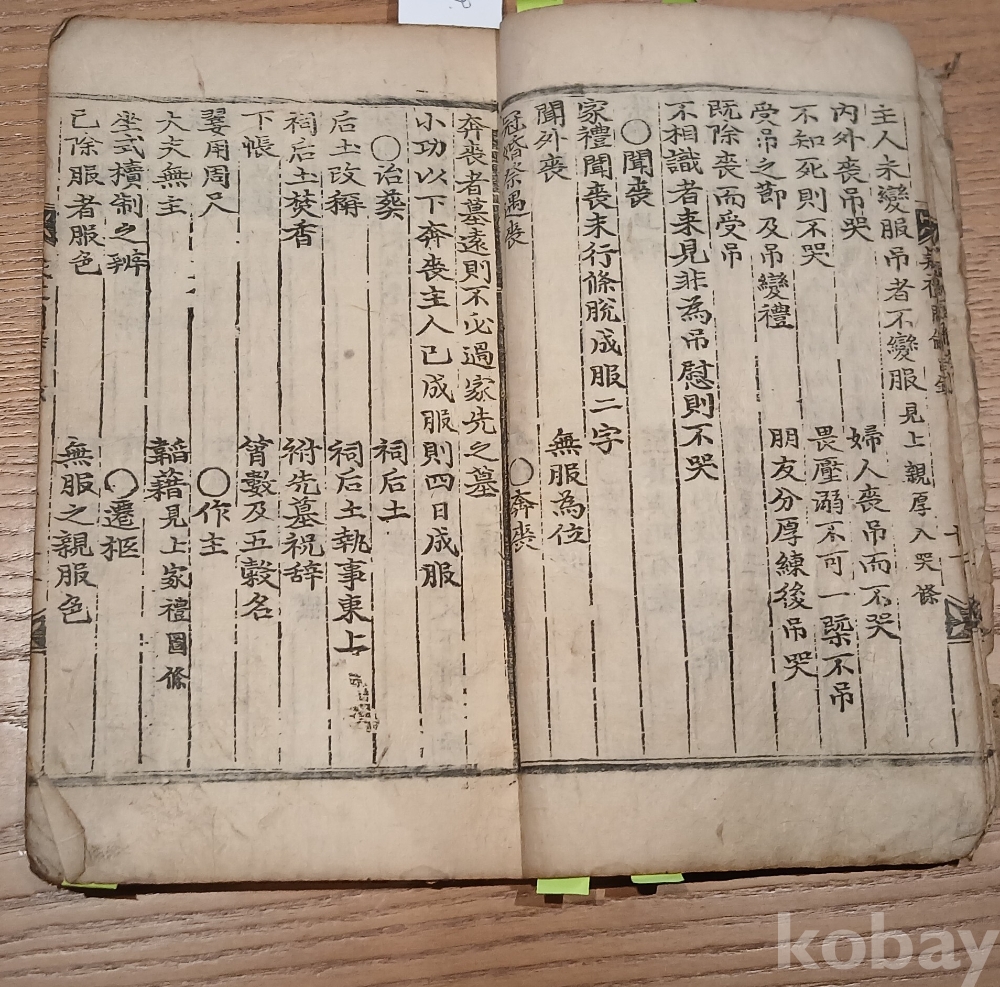 主人未變服吊者不變服見上 親厚入哭條
內外喪吊哭 婦人喪吊而不哭
不知死則不哭 畏壓溺不可一槩不吊
受吊之節及吊變禮 朋友分厚練後吊哭
既除喪而受吊
不相識者来見非為吊慰則不哭
○聞喪
家禮聞喪未行條脫成服二字
聞外喪 無服為位
冠婚祭遇喪 ○奔喪
奔喪者墓遠則不必過家先之墓
小功以下奔喪主人已成服則四日成服
○治葬 祠后土
后土改稱 祠后土執事東上
祠后土焚香 祔先墓祝辞
下帳 筲數及五穀名
翣用周尺 ○作主
大夫無主 韜藉見上家禮圖條
坐式櫝制之辨 ○遷柩
已除服者服色 無服之親服色
kobay